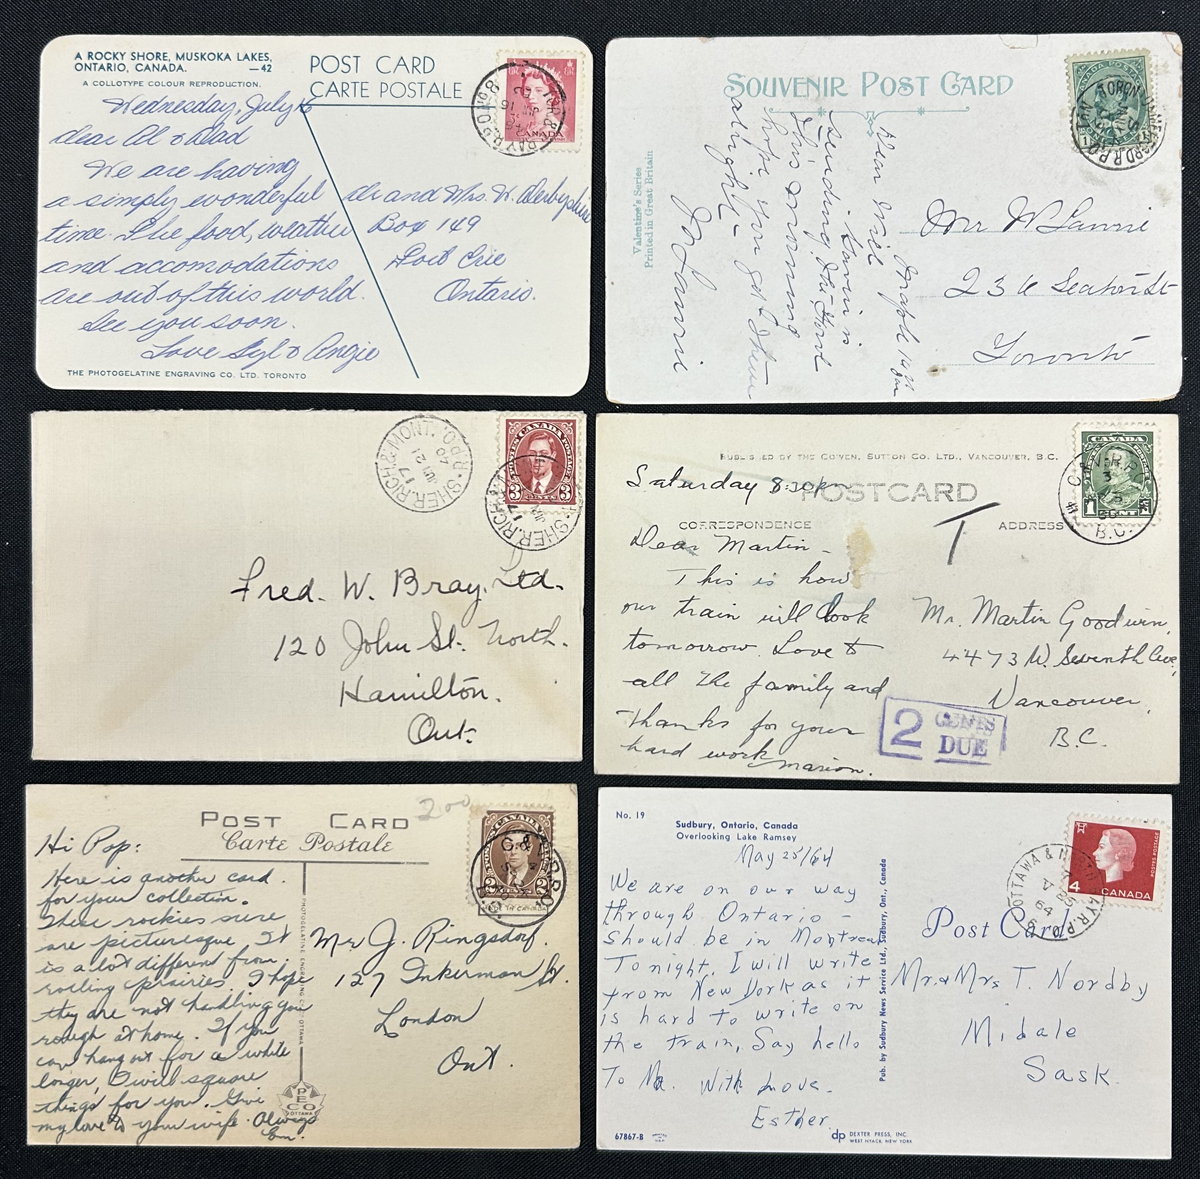 A ROCKY SHORE, MUSKOKA LAKES,
ONTARIO, CANADA. —42
A COLLOTYPE COLOUR REPRODUCTION.
POST CARD
CARTE POSTALE
CANADA
Wednesday, July
dear Al & Dad
We are having
a simply wonderful
time. The food, weather
and accomodations
are out of this world.
See you soon.
Love Syl & Angie
and Mrs. W. Derbyshire
Box 149
Fort Erie
Ontario.
THE PHOTOGELATINE ENGRAVING CO. LTD. TORONTO
SOUVENIR POST CARD
Valentine's Series
Printed in Great Britain
Dear
sending the
this morning
hope you get
alright
Mr W
Toronto
SHER. RICH. & MONT.
R.P.O.
17
JUN 21
40
POSTES CANADA POSTAGE
3 CENTS 3
Fred. W. Bray, Ltd.
120 John St. North.
Hamilton.
Ont.
PUBLISHED BY THE GOWEN, SUTTON CO. LTD., VANCOUVER, B.C.
POSTCARD
CORRESPONDENCE
ADDRESS
T
CANADA
1
B.C.
Saturday 8:30 pm
Dear Martin –
This is how
our train will look
tomorrow. Love to
all the family and
thanks for your
hard work Marion.
Mr. Martin Goodwin,
4473 W. Seventh Ave,
Vancouver,
B.C.
2 CENTS
DUE
POST CARD
Carte Postale
2.00
CANADA
2
Hi Pop:
Here is another card
for your collection.
These rockies sure
are picturesque. It
is a lot different from
rolling prairies. I hope
they are not handling you
rough at home. If you
can hang out for a while
longer, I will square
things for you. Give
my love to your wife. Always
Em.
Mr J. Ringsdorf.
127 Inkerman St.
London
Ont.
PHOTOGELATINE ENGRAVING CO. LTD. OTTAWA
PECO
OTTAWA
No. 19
Sudbury, Ontario, Canada
Overlooking Lake Ramsey
May 25/64
We are on our way
through Ontario –
should be in Montreal
Tonight, I will write
from New York as it
is hard to write on
the train, Say hello
To Ma. With Love.
Esther.
Pub. by Sudbury News Service Ltd., Sudbury, Ont., Canada
4
CANADA
POSTES POSTAGE
Post Card
Mr. & Mrs T. Nordby
Midale
Sask.
67867-B
dp DEXTER PRESS, INC.
WEST NYACK, NEW YORK